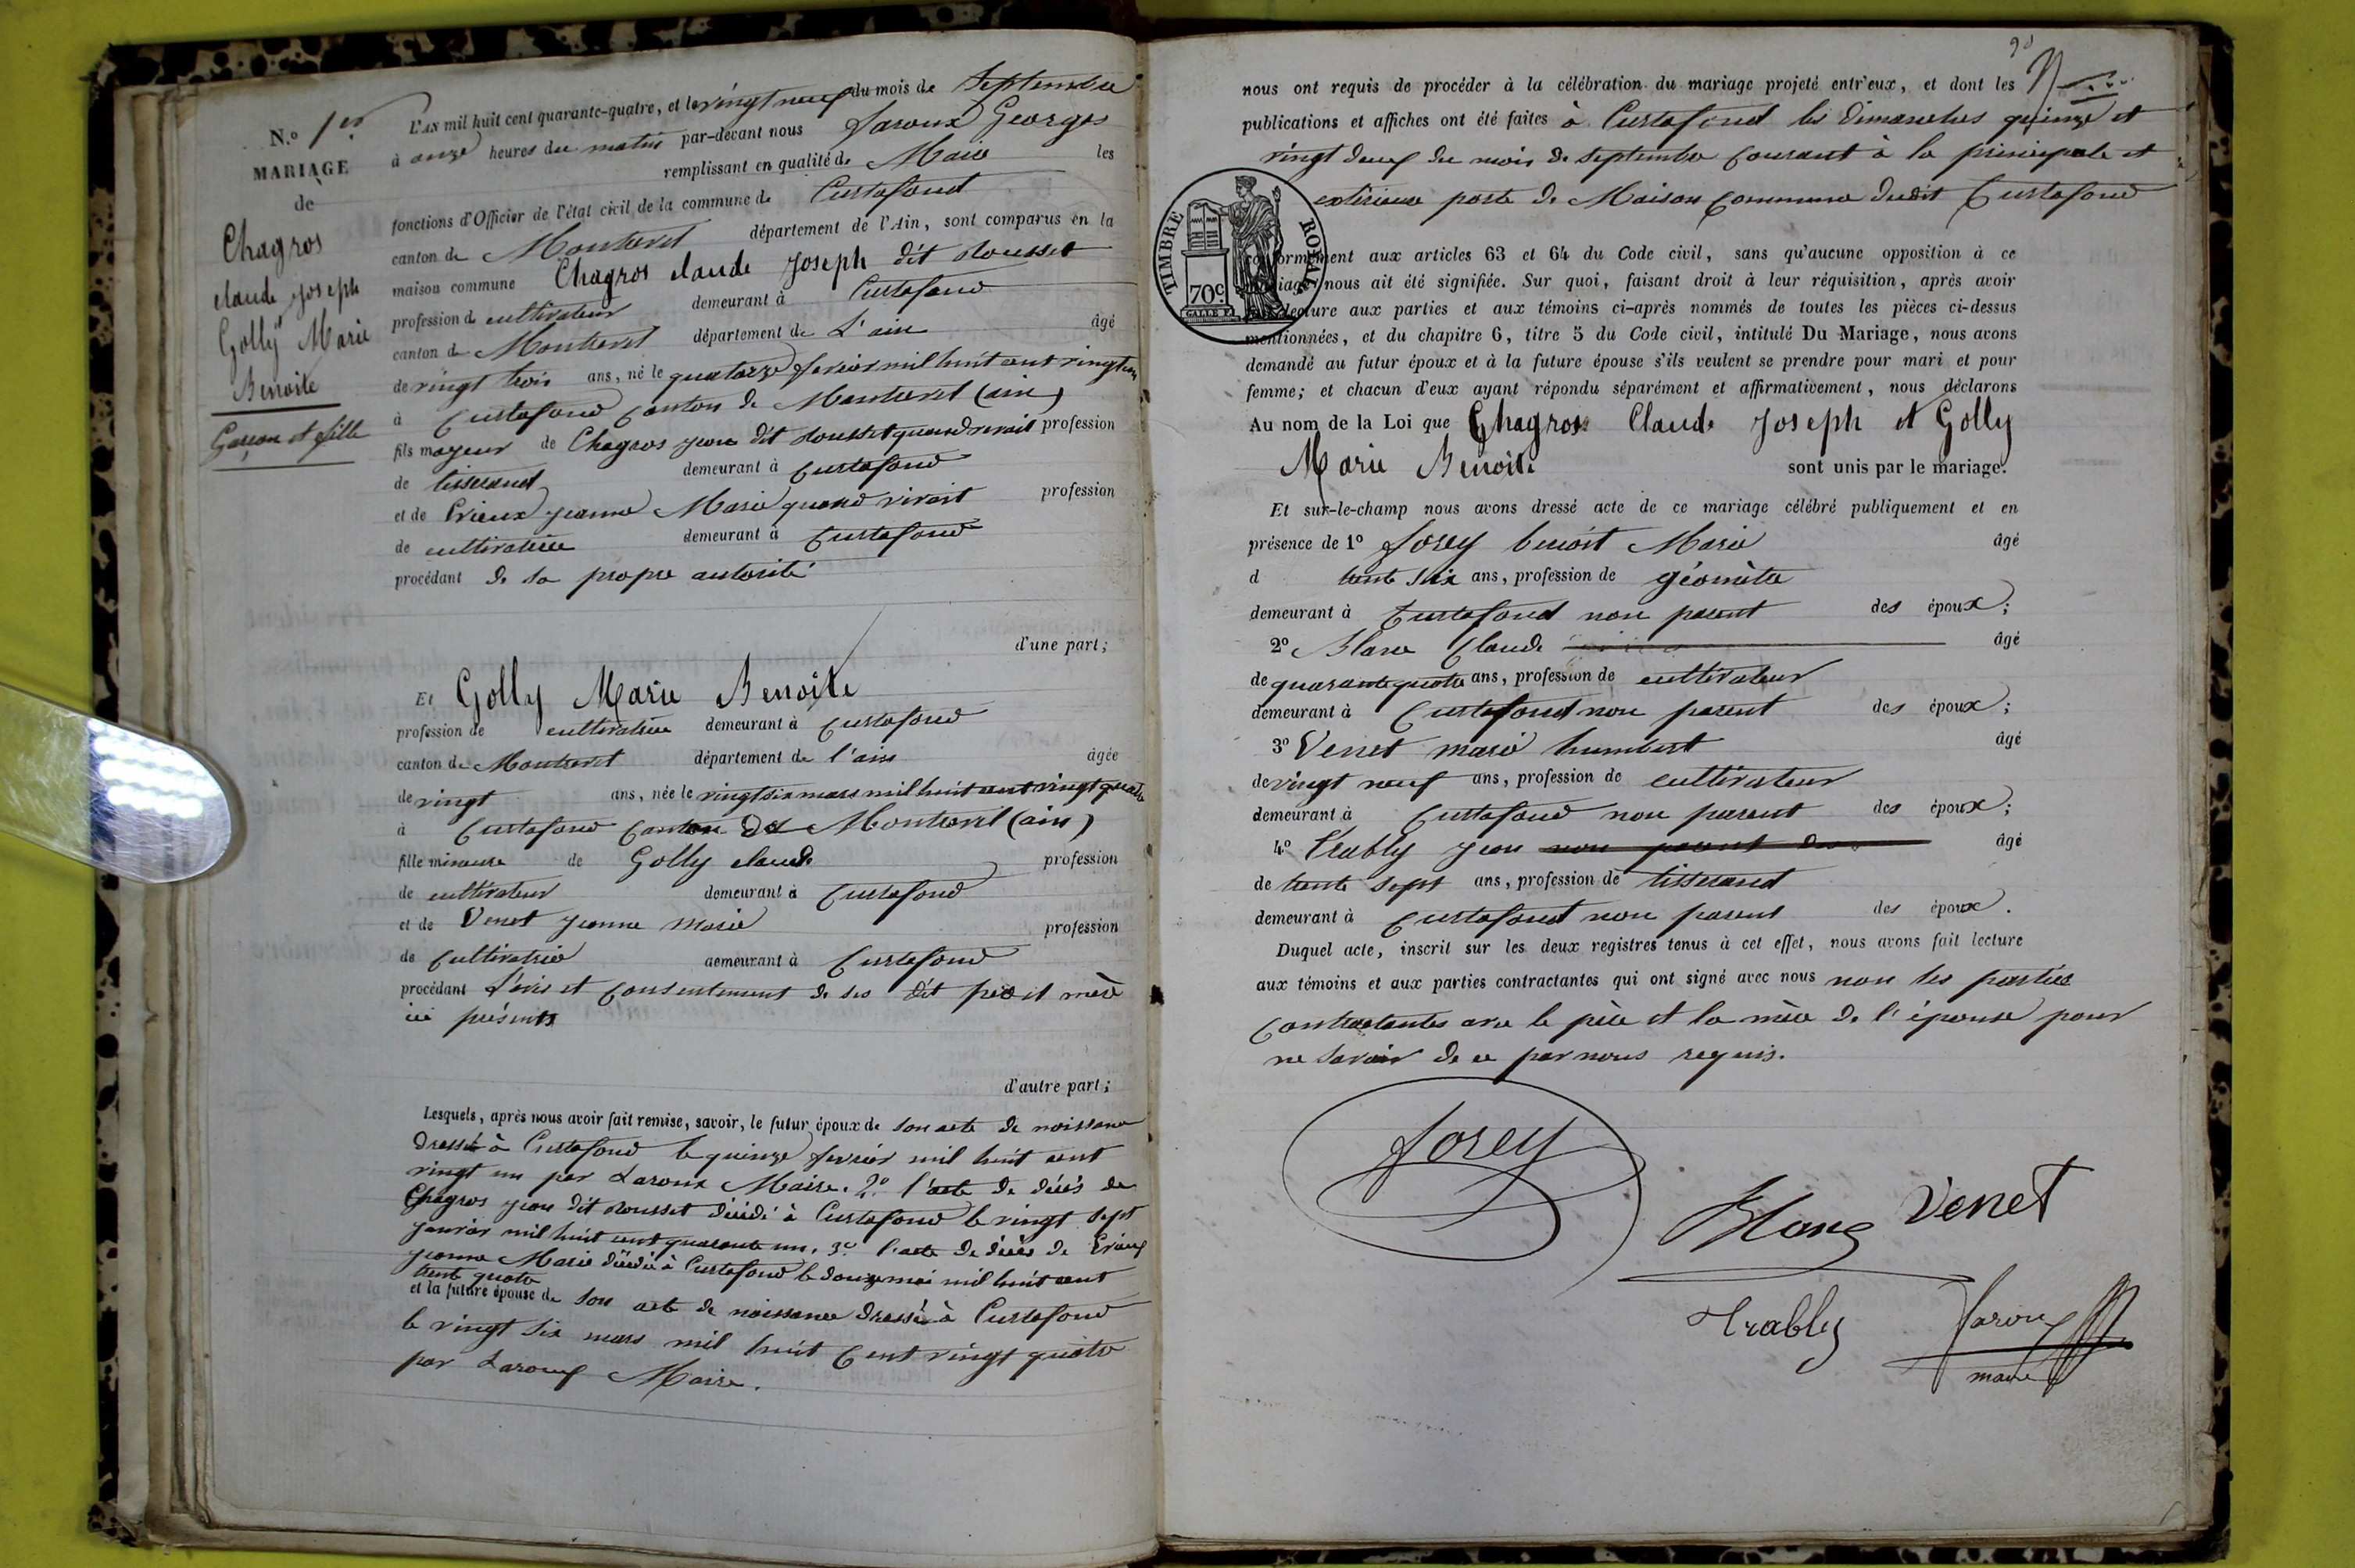 N.o 1er
MARIAGE
de
Chagros
claude joseph
Golly Marie
Benoite
Garçon et fille
L'AN mil huit cent quarante-quatre, et le vingt neuf du mois de Septembre
à onze heures du matin par-devant nous Laroux Georges
remplissant en qualité de Maire les
fonctions d'Officier de l'état civil de la commune de Curtafond
canton de Montrevel département de l'Ain, sont comparus en la
maison commune Chagros claude Joseph dit Rousset
profession de cultivateur demeurant à Curtafond
canton de Montrevel département de L'ain âgé
de vingt trois ans, né le quatorze fevrier mil huit cent vingt un
à Curtafond Canton de Montrevel (ain)
fils majeur de Chagros jean dit Rousset quand vivait profession
de tisserand demeurant à Curtafond
et de Crieux jeanne Marie quand vivait profession
de cultivatrice demeurant à Curtafond
procédant de sa propre autorité
d'une part;
Et Golly Marie Benoite
profession de cultivatrice demeurant à Curtafond
canton de Montrevel département de l'ain âgée
de vingt ans, née le vingt six mars mil huit cent vingt quatre
à Curtafond Canton de Montrevel (ain)
fille mineure de Golly claude profession
de cultivateur demeurant à Curtafond
et de Venet jeanne Marie profession
de Cultivatrice demeurant à Curtafond
procédant L'avis et Consentement de ses dit père et mère
ici présents
d'autre part;
Lesquels, après nous avoir fait remise, savoir, le futur époux de son acte de naissance
dressé à Curtafond le quinze fevrier mil huit cent
vingt un par Laroux Maire. 2o l'acte de décès de
Chagros jean dit Rousset décédé à Curtafond le vingt sept
janvier mil huit cent quarante un. 3o l'acte de décès de Crieux
jeanne Marie décédée à Curtafond le douze mai mil huit cent
trente quatre
et la future épouse de son acte de naissance dressé à Curtafond
le vingt six mars mil huit Cent vingt quatre
par Laroux Maire.
nous ont requis de procéder à la célébration du mariage projeté entr'eux, et dont les
publications et affiches ont été faites à Curtafond les dimanches quinze et
vingt deux du mois de septembre Courant à la principale et
extérieure porte de Maison Commune dudit Curtafond
TIMBRE ROYAL
70c
conformément aux articles 63 et 64 du Code civil, sans qu'aucune opposition à ce
mariage nous ait été signifiée. Sur quoi, faisant droit à leur réquisition, après avoir
lecture aux parties et aux témoins ci-après nommés de toutes les pièces ci-dessus
mentionnées, et du chapitre 6, titre 5 du Code civil, intitulé Du Mariage, nous avons
demandé au futur époux et à la future épouse s'ils veulent se prendre pour mari et pour
femme; et chacun d'eux ayant répondu séparément et affirmativement, nous déclarons
Au nom de la Loi que Chagros Claude Joseph et Golly
Marie Benoite sont unis par le mariage.
Et sur-le-champ nous avons dressé acte de ce mariage célébré publiquement et en
présence de 1o Forey benoit Marie âgé
d trente six ans, profession de géomètre
demeurant à Curtafond non parent des époux;
2o Blanc Claude âgé
de quarante quatre ans, profession de cultivateur
demeurant à Curtafond non parent des époux;
3o Venet marie humbert âgé
de vingt neuf ans, profession de cultivateur
demeurant à Curtafond non parent des époux;
4o Trably jean non parent des âgé
de trente sept ans, profession de tisserand
demeurant à Curtafond non parent des époux.
Duquel acte, inscrit sur les deux registres tenus à cet effet, nous avons fait lecture
aux témoins et aux parties contractantes qui ont signé avec nous non les parties
Contractantes avec le père et la mère de l'épouse pour
ne savoir de ce par nous requis.
Forey
Blanc Venet
Trably Laroux
maire